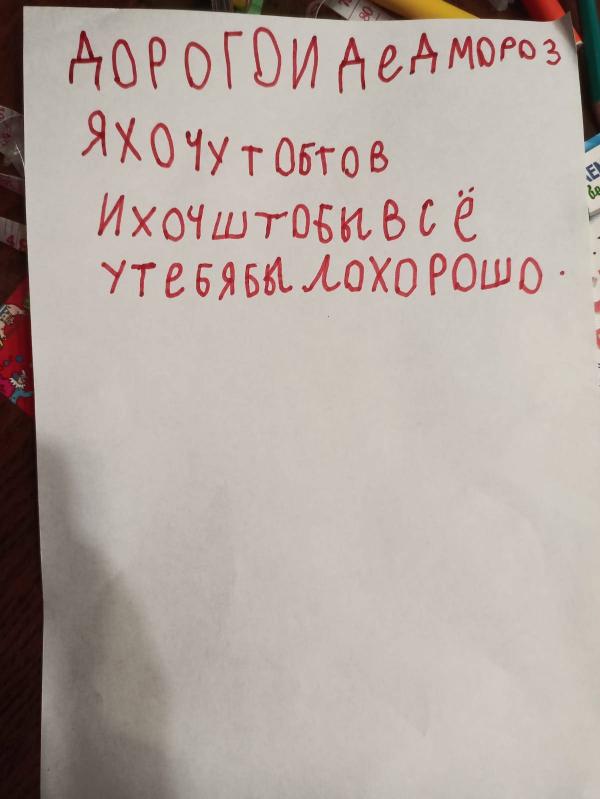 ДОРОГОИ ДеД МОРОЗ
Я ХОЧУ ТОБТОВ
И ХОЧ ШТОБЫ ВСЁ
У ТЕБЯ БЫЛО ХОРОШО.